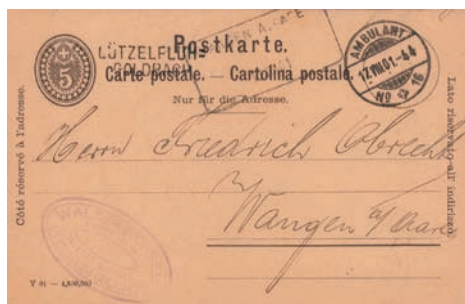 Postkarte.
LÜTZELFLÜH-
GOLDBACH
5
Carte postale. — Cartolina postale.
Nur für die Adresse.
AMBULANT
12.VIII.01.-4
No 16
Côté réservé à l'adresse.
Lato riservato all' indirizzo.
Herrn Friedrich Obrecht
Wangen a/Aare
V 01 — 4,800,000